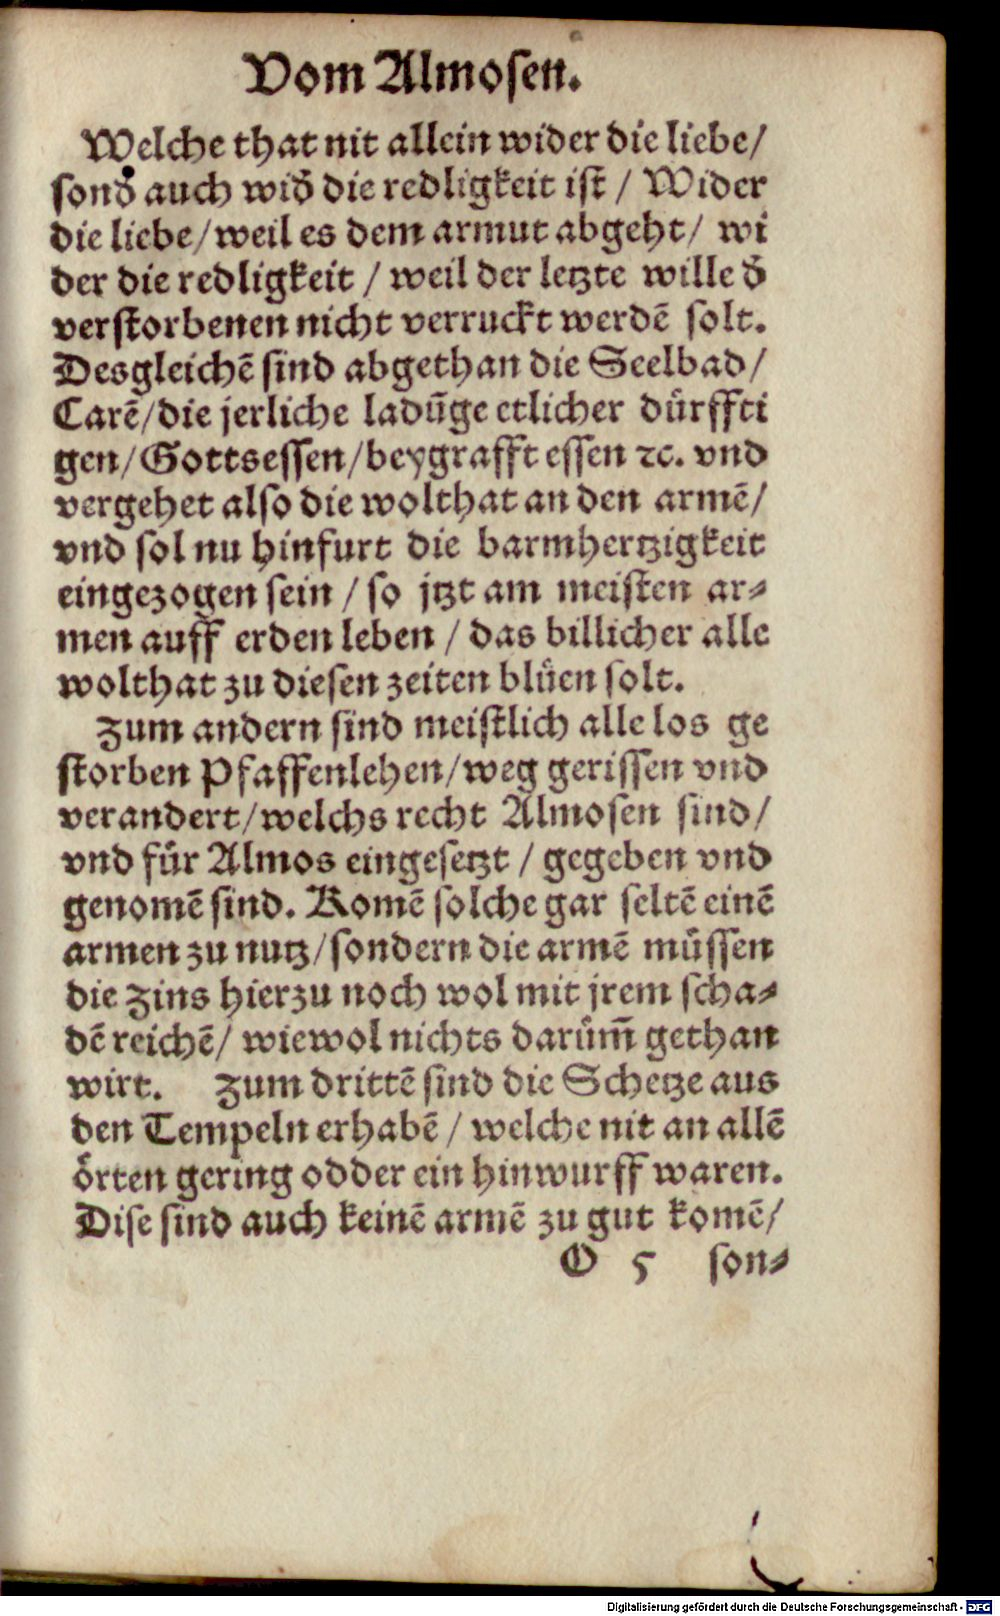 Vom Almosen.
Welche that nit allein wider die liebe/
sond̄ auch wid̄ die redligkeit ist / Wider
die liebe/ weil es dem armut abgeht/ wi
der die redligkeit / weil der letzte wille d̄
verstorbenen nicht verruckt werdē solt.
Desgleichē sind abgethan die Seelbad/
Carē/ die jerliche ladūge etlicher dürffti
gen/ Gottsessen/ beygrafft essen ꝛc. vnd
vergehet also die wolthat an den armē/
vnd sol nu hinfurt die barmhertzigkeit
eingezogen sein / so jtzt am meisten ar⸗
men auff erden leben / das billicher alle
wolthat zu diesen zeiten blüen solt.
Zum andern sind meistlich alle los ge
storben Pfaffenlehen/ weg gerissen vnd
verandert/ welchs recht Almosen sind/
vnd für Almos eingesetzt / gegeben vnd
genomē sind. Komē solche gar seltē einē
armen zu nutz/ sondern die armē müssen
die Zins hierzu noch wol mit jrem scha⸗
dē reichē/ wiewol nichts darüm̄ gethan
wirt. Zum drittē sind die Schetze aus
den Tempeln erhabē / welche nit an allē
örten gering odder ein hinwurff waren.
Dise sind auch keinē armē zu gut komē/
O 5 son⸗
Digitalisierung gefördert durch die Deutsche Forschungsgemeinschaft - DFG